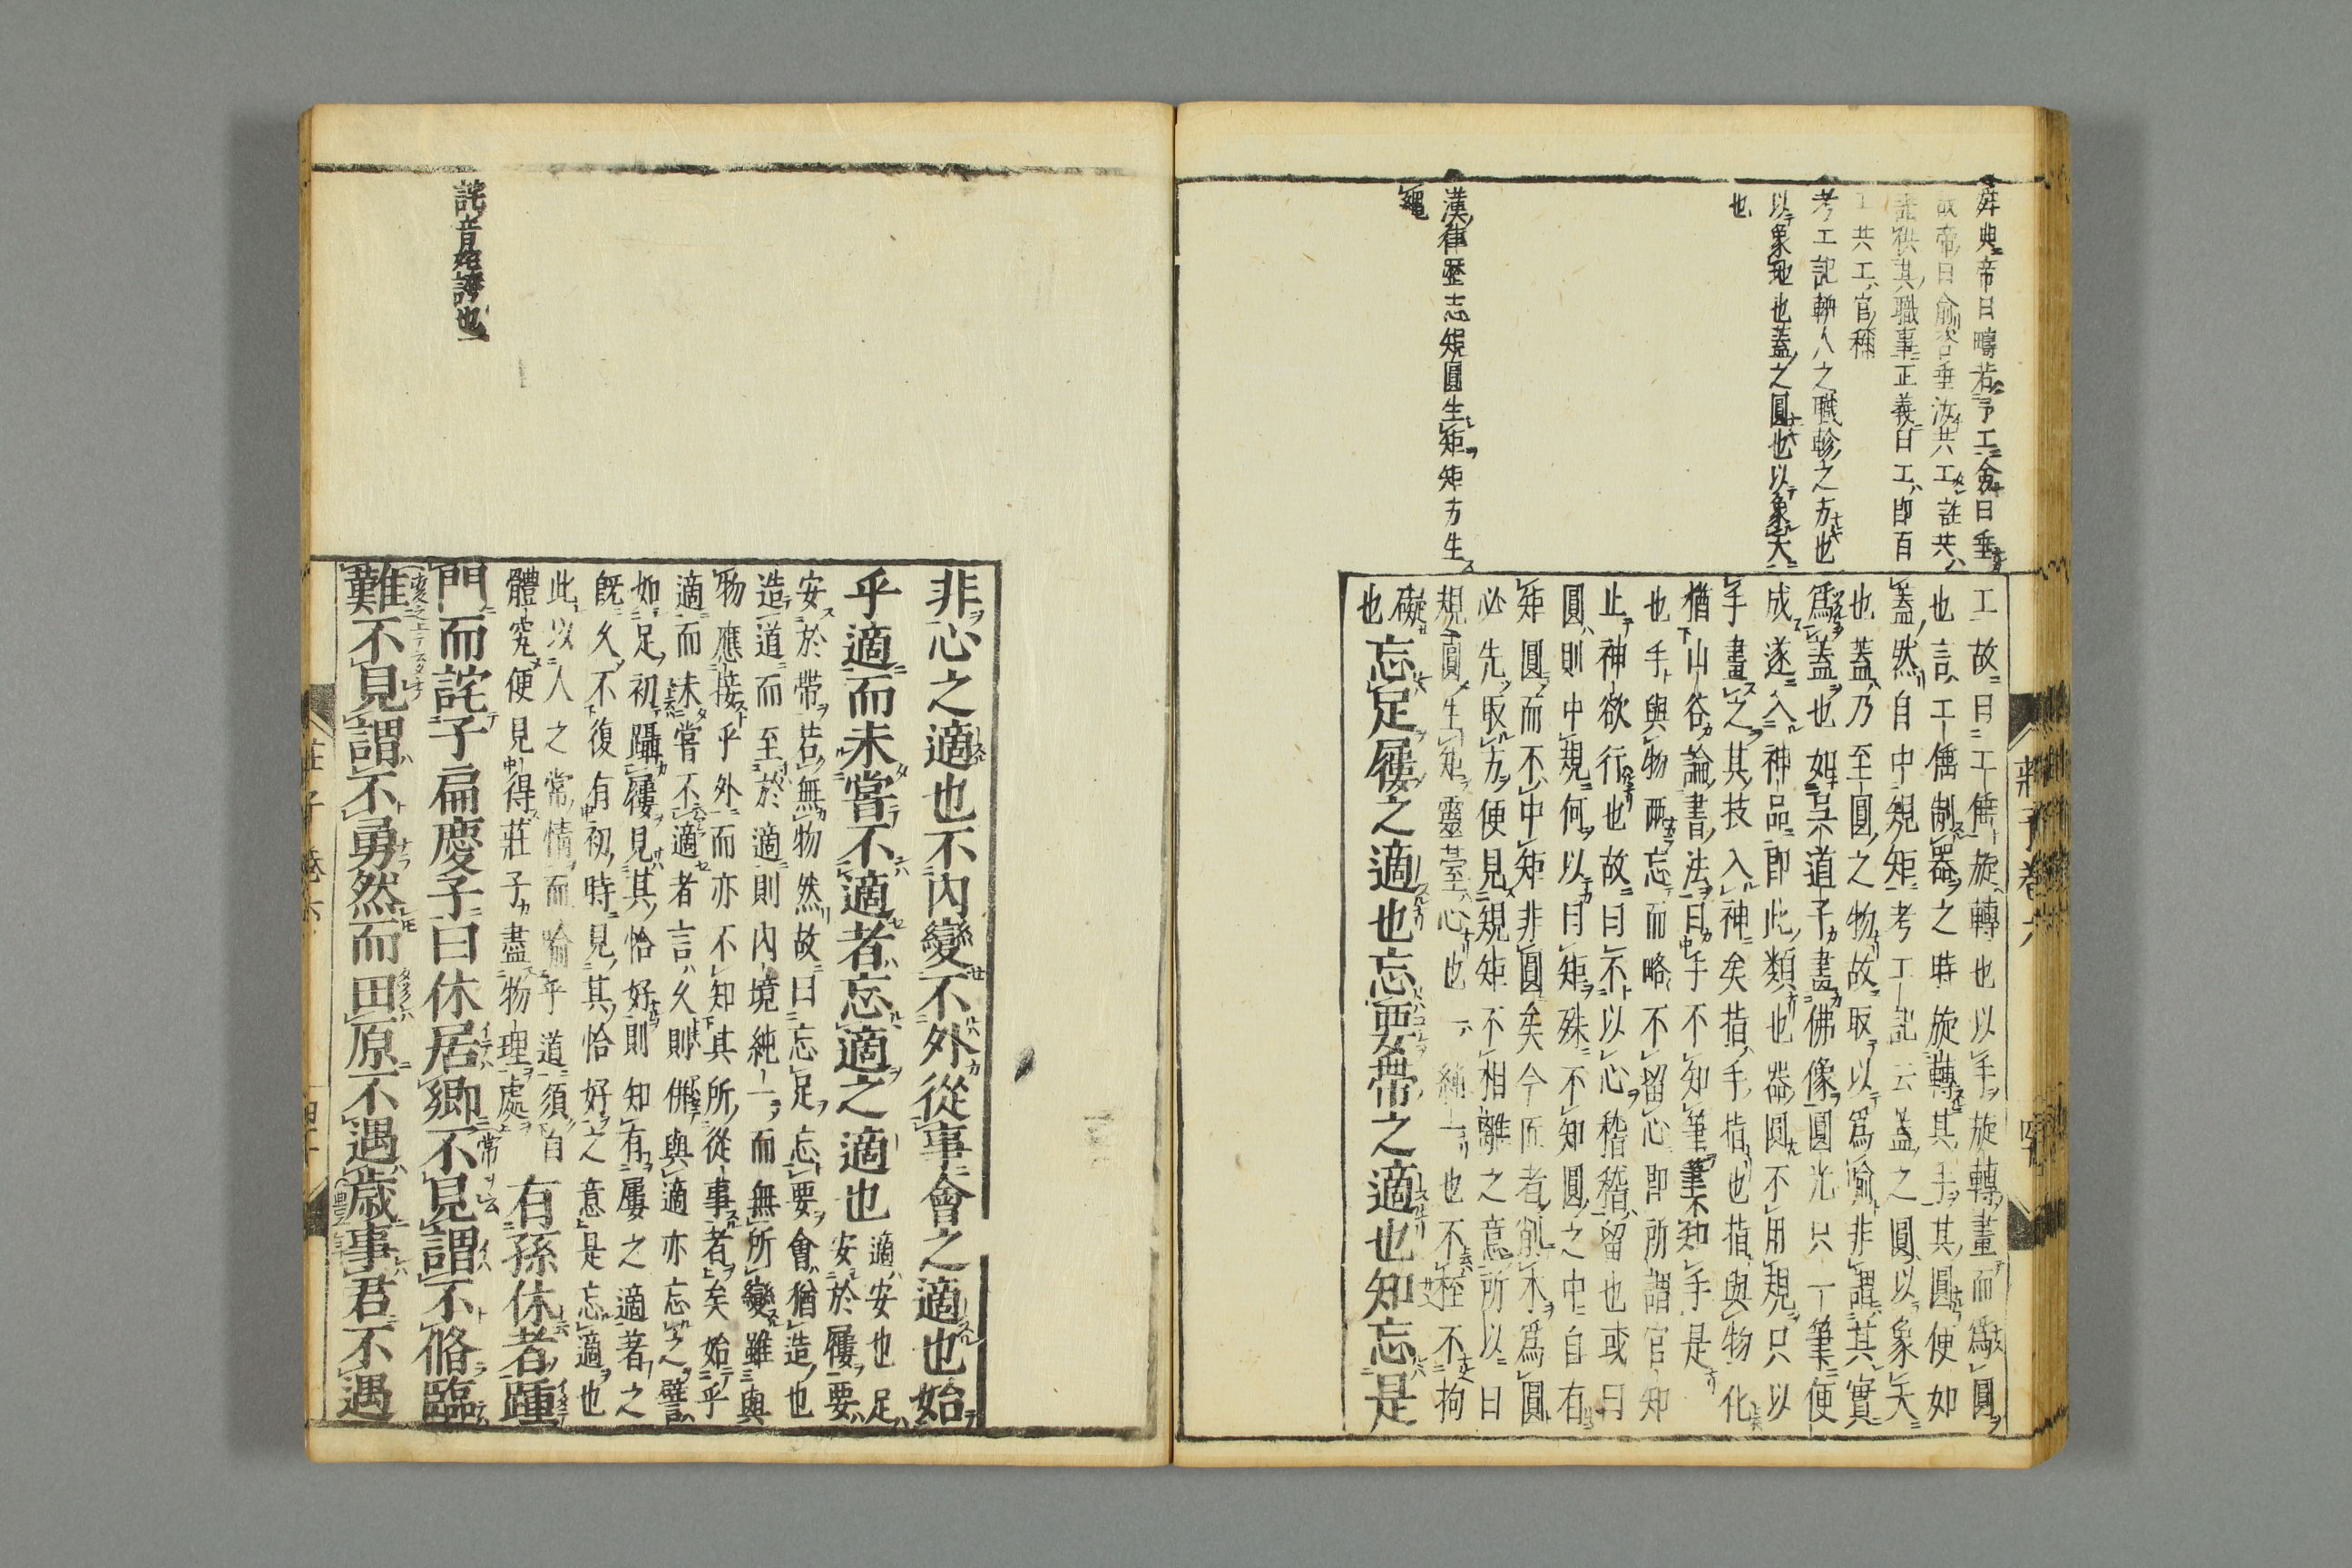 舜典帝曰疇若予工僉曰垂
帝曰俞咨垂汝共工註共
供其職事正義曰工即百
工共工官稱
考工記輈人之職軫之方也
以象地也蓋之圓也以象天
也
漢律歷志規圓生矩矩方生
繩
工故曰工倕旋旋轉也以手旋轉畫而爲圓
也言工倕制器之時旋轉其手其圓便如
蓋然自中規矩考工記云蓋之圓以象天
也蓋乃至圓之物故取以爲喻非謂其實
爲蓋也如吳道子畫佛像圓光只一筆便
成遂入神品即此類也器圓不用規只以
手畫之其技入神矣指手指也指與物化
猶山谷論書法曰手不知筆筆不知手是
也手與物兩忘而略不留心即所謂官知
止神欲行也故曰不以心稽稽留也或曰
圓則中規何以曰矩殊不知圓之中自有
矩圓而不中矩非圓矣今匠者削木爲圓
必先取方便見規矩不相離之意所以曰
規圓生矩靈臺心也一純一也不桎不拘
礙
也忘足屨之適也忘要帶之適也知忘是
莊子卷六
非心之適也不內變不外從事會之適也始
乎適而未嘗不適者忘適之適也適安也足
安於屨要
安於帶若無物然故曰忘足忘要會猶造也
造道而至於適則內境純一而無所變雖與
物應接乎外而亦不知其所從事者矣始乎
適而未嘗不適者言久則併與適亦忘之譬
如足初躡屨見其恰好則知有屨之適著之
既久不復有初時見其恰好之意是忘適也
此以人之常情而喻乎道須自
體究便見得莊子盡物理處有孫休者踵
門而詫子扁慶子曰休居鄉不見謂不脩臨
難不見謂不勇然而田原不遇歲事君不遇
詫音奼誇也
莊子卷六